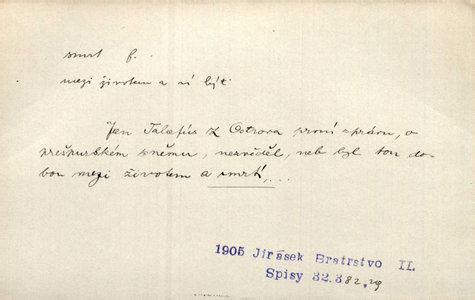 smrt f.
mezi životem a sí být.
Jen Talafús z Ostrova první zprávu, o
prešpurském sněmu, nezvěděl, neb byl tou do-
bou mezi životem a smrtí,...
1905 Jirásek Bratrstvo II.
Spisy 32.382,29